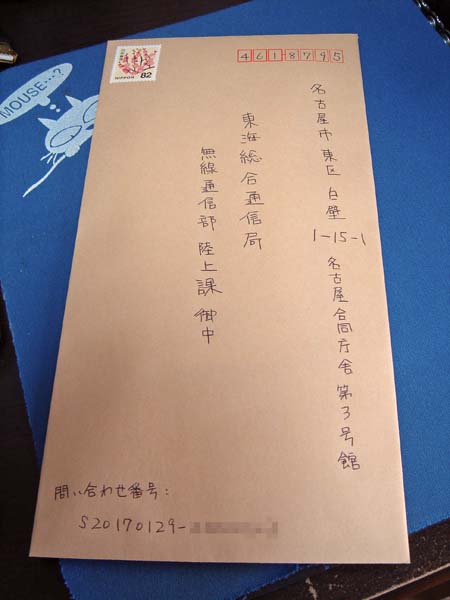 4618795
名古屋市東区白壁
1-15-1 名古屋合同庁舎第3号館
東海総合通信局
無線通信部 陸上課 御中
問い合わせ番号:
S20170129-
NIPPON 82
MOUSE...?